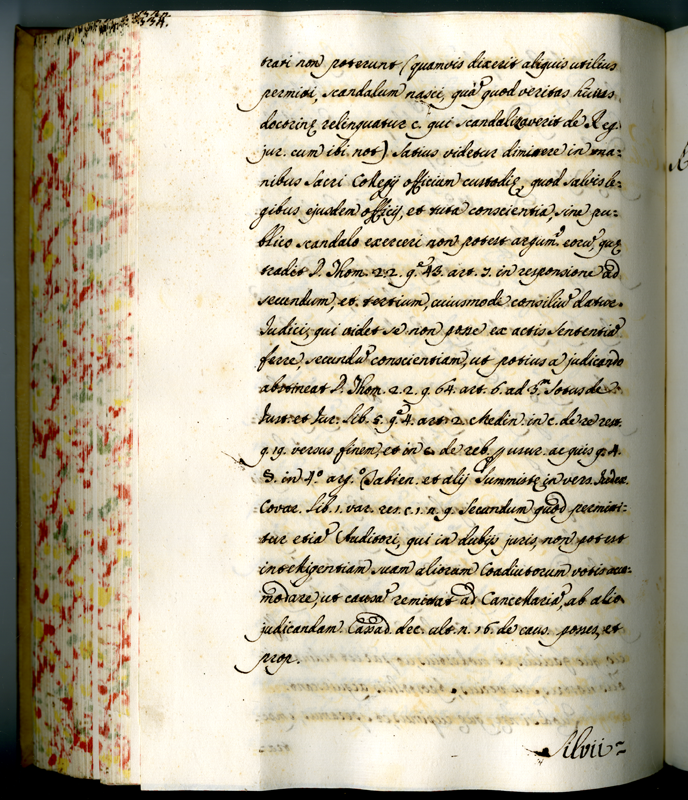 trari non poterunt (quamvis dixerit aliquis utilius
permitti, scandalum nasci, quã quod veritas
doctrinę relinquatur c. qui scandalizaverit de Reg.
jur. cum ibi not.) Satius videtur dimittere in ma=
nibus Sacri Collegij officium custodię, quod salvis le=
gibus ejusdem officij, et tuta conscientia, sine pu=
blico scandalo exerceri non potest argum.º eorũ, quę
tradit D. Thom. 2.2. q. 43. art. 7. in responsione ad
secundum, et tertium, cuiusmodi consiliũ datur
Judici, qui videt se non posse ex actis Sententiã
ferre, secundũ conscientiam, ut potius a judicando
abstineat D. Thom. 2.2. q. 64. art. 6. ad 3.m Sotus de
Just. et Jur. lib. 5. q. 4. art. 2. Medin. in c. de re rest.
q. 19. versus finem, et in c. de reb. usur. acquis q. 4.
S. in 4.º arg.º Tabien. et alij Summistę in vers. Judex.
Covar. lib. 1. var. res. c. 1. n. 9. Secundum quod permitti=
tur etiã Auditori, qui in dubijs juris, non potest
intelligentiam suam aliorum Coadiutorum votis acco=
modare, ut causã remittat ad Cancellariã, ab alio
judicandam Cassad. dec. ult. n. 16. de caus. posses, et
prop.
Silvii=